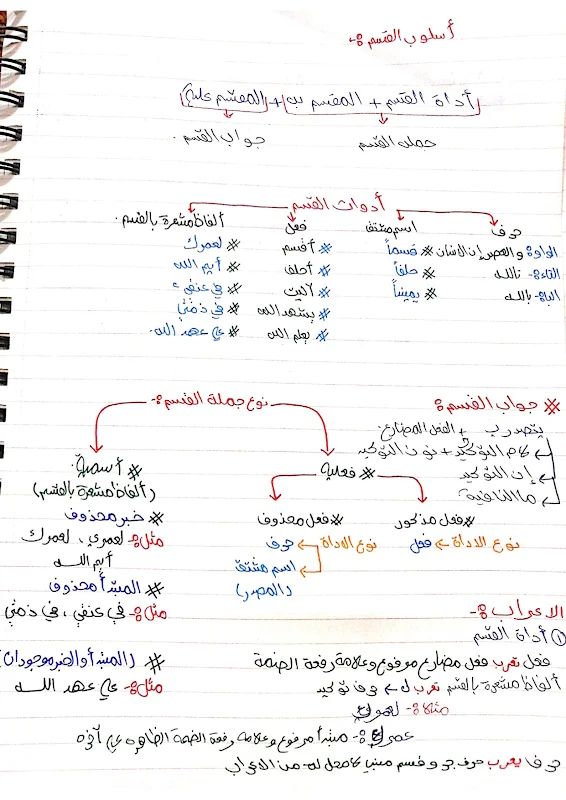 أسلوب القسم :-
أداة القسم + المقسم به + المقسم عليه
جملة القسم
جواب القسم .
أدوات القسم
حرف
اسم مشتق
فعل
ألفاظ مشعرة بالقسم .
الواو :- والعصر إن الإنسان # قسماً # أقسم # لعمرك
التاء :- تالله # حلفاً # أحلف # أيم الله
الباء :- بالله # يميناً # آليت # في عنقي
# يشهد الله # في ذمتي
# يعلم الله # علي عهد الله .
# جواب القسم :
يتصدر ب + الفعل المضارع .
لام التوكيد + نون التوكيد
إن التوكيد
ما النافية
نوع جملة القسم :-
# فعلية
# اسمية .
(ألفاظ مشعرة بالقسم)
# فعل مذكور
نوع الاداة ← فعل
# فعل محذوف
نوع الاداة ← حرف
اسم مشتق
(المصدر)
# خبر محذوف
مثل :- لعمري ، لعمرك
أيم الله
# المبتدأ محذوف
مثل :- في عنقي ، في ذمتي
# (المبتدأ والخبر موجودان)
مثل :- علي عهد الله
الاعراب :-
① أداة القسم
فعل تعرب فعل مضارع مرفوع وعلامة رفعة الضمة
ألفاظ مشعرة بالقسم تعرب ل ← حرف توكيد
مثلا :- لعمرك
عمرك :- مبتدأ مرفوع وعلامة رفعة الضمة الظاهره علي آخره
حرف يعرب حرف جر وقسم مبنيا لا محل له من الاعراب